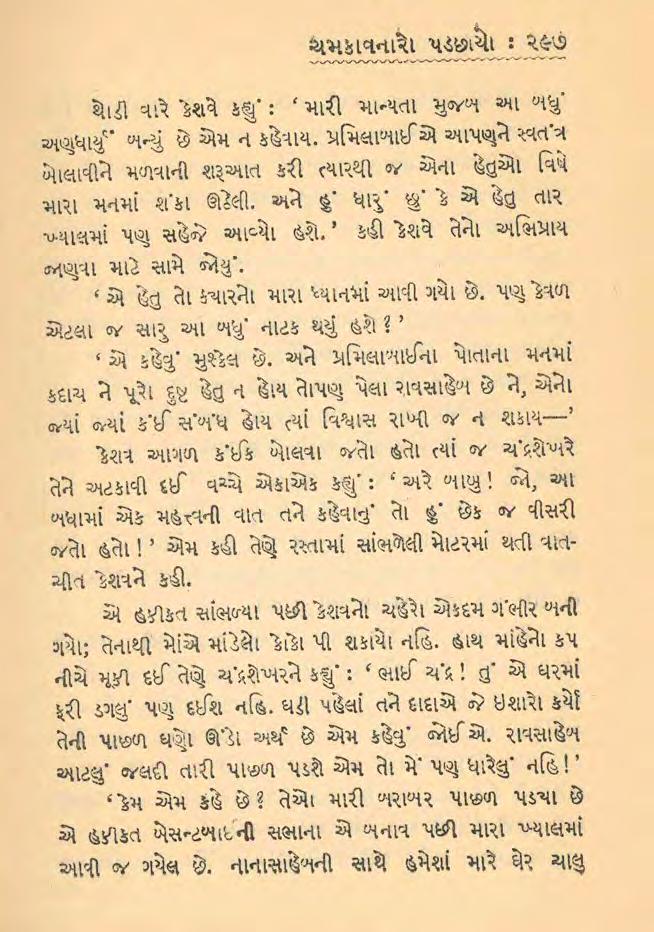 ચમકાવનારો પડછાયો : ૨૯૭
થોડી વારે કેશવે કહ્યું : ‘ મારી માન્યતા મુજબ આ બધું
અણધાર્યું બન્યું છે એમ ન કહેવાય. પ્રમિલાબાઈએ આપણને સ્વતંત્ર
બોલાવીને મળવાની શરૂઆત કરી ત્યારથી જ એના હેતુઓ વિષે
મારા મનમાં શંકા ઊઠેલી. અને હું ધારું છું કે એ હેતુ તાર
ખ્યાલમાં પણ સહેજે આવ્યો હશે. ’ કહી કેશવે તેનો અભિપ્રાય
જાણવા માટે સામે જોયું.
‘ એ હેતુ તો ક્યારનો મારા ધ્યાનમાં આવી ગયો છે. પણ કેવળ
એટલા જ સારુ આ બધું નાટક થયું હશે ? ’
‘ એ કહેવું મુશ્કેલ છે. અને પ્રમિલાબાઈના પોતાના મનમાં
કદાચ ને પૂરો દુષ્ટ હેતુ ન હોય તોપણ પેલા રાવસાહેબ છે ને, એનો
જ્યાં જ્યાં કંઈ સંબંધ હોય ત્યાં વિશ્વાસ રાખી જ ન શકાય—’
કેશવ આગળ કંઈક બોલવા જતો હતો ત્યાં જ ચંદ્રશેખરે
તેને અટકાવી દઈ વચ્ચે એકાએક કહ્યું : ‘ અરે બાબુ ! જો, આ
બધામાં એક મહત્ત્વની વાત તને કહેવાનું તો હું છેક જ વીસરી
જતો હતો ! ’ એમ કહી તેણે રસ્તામાં સાંભળેલી મોટરમાં થતી વાત-
ચીત કેશવને કહી.
એ હકીકત સાંભળ્યા પછી કેશવનો ચહેરો એકદમ ગંભીર બની
ગયો; તેનાથી મોંએ માંડેલો કોકો પી શકાયો નહિ. હાથ માંહેનો કપ
નીચે મૂકી દઈ તેણે ચંદ્રશેખરને કહ્યું : ‘ ભાઈ ચંદ્ર ! તું એ ઘરમાં
ફરી ડગલું પણ દઈશ નહિ. ઘડી પહેલાં તને દાદાએ જે ઇશારો કર્યો
તેની પાછળ ઘણો ઊંડો અર્થ છે એમ કહેવું જોઈએ. રાવસાહેબ
આટલું જલદી તારી પાછળ પડશે એમ તો મેં પણ ધારેલું નહિ ! ’
‘ કેમ એમ કહે છે ? તેઓ મારી બરાબર પાછળ પડયા છે
એ હકીકત બેસન્ટબાઈની સભાના એ બનાવ પછી મારા ખ્યાલમાં
આવી જ ગયેલ છે. નાનાસાહેબની સાથે હમેશાં મારે ઘેર ચાલુ